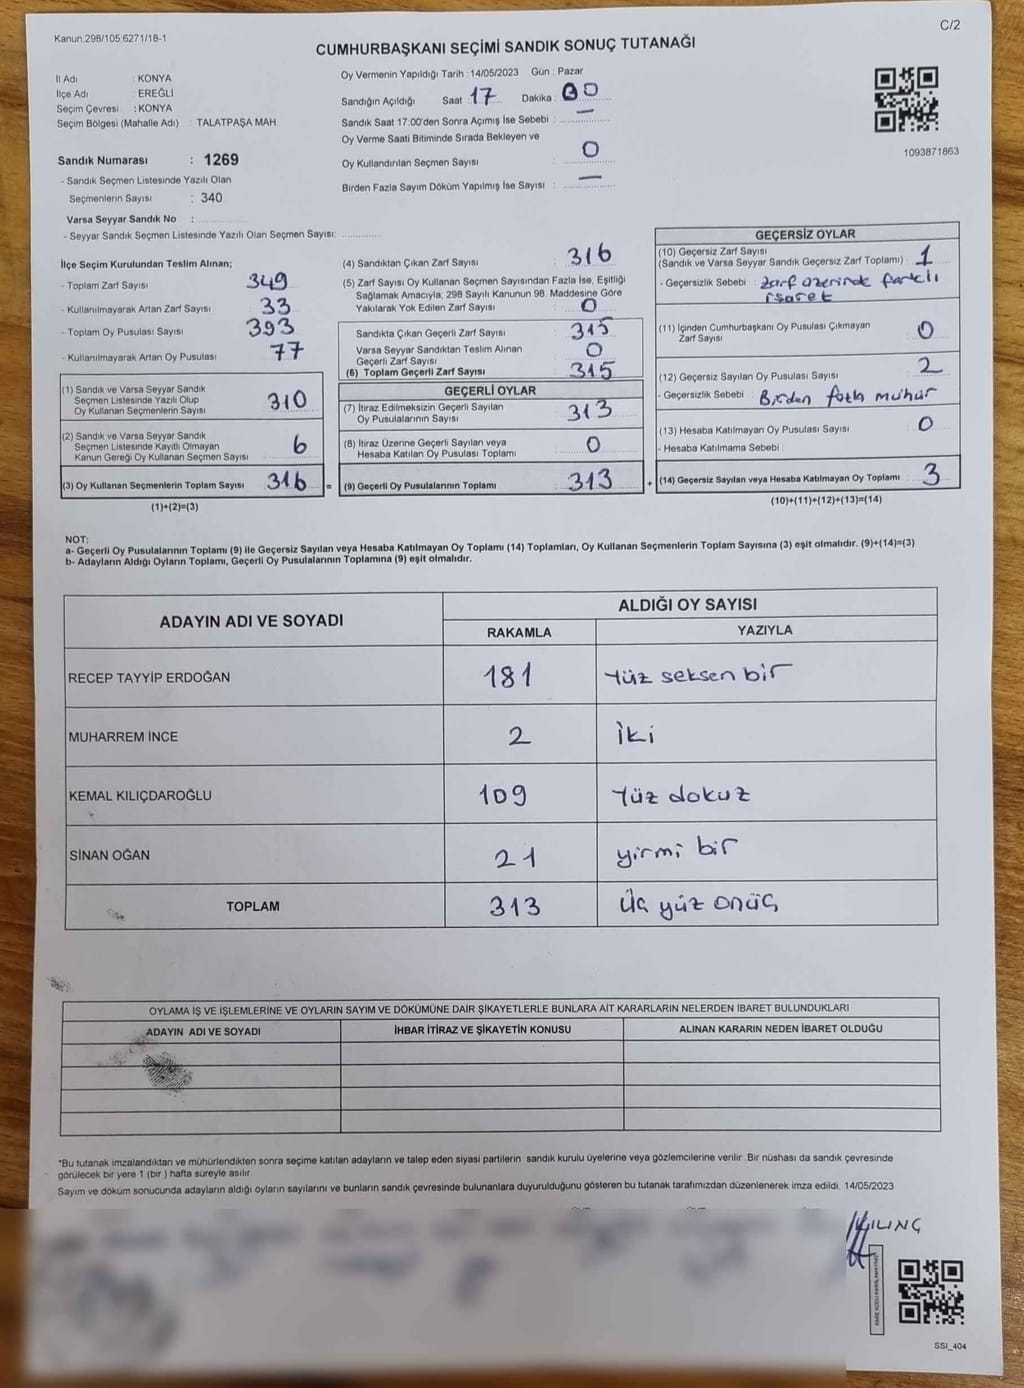 Kanun:298/105,6271/18-1
C/2
CUMHURBAŞKANI SEÇİMİ SANDIK SONUÇ TUTANAĞI
İl Adı : KONYA
İlçe Adı : EREĞLİ
Seçim Çevresi : KONYA
Seçim Bölgesi (Mahalle Adı) : TALATPAŞA MAH.
Sandık Numarası : 1269
- Sandık Seçmen Listesinde Yazılı Olan
Seçmenlerin Sayısı : 340
Varsa Seyyar Sandık No :
- Seyyar Sandık Seçmen Listesinde Yazılı Olan Seçmen Sayısı:
Oy Vermenin Yapıldığı Tarih : 14/05/2023 Gün : Pazar
Sandığın Açıldığı Saat : 17 Dakika : 00
Sandık Saat 17:00'den Sonra Açımış İse Sebebi : —
Oy Verme Saati Bitiminde Sırada Bekleyen ve
Oy Kullandırılan Seçmen Sayısı : 0
Birden Fazla Sayım Döküm Yapılmış İse Sayısı : —
1093871863
İlçe Seçim Kurulundan Teslim Alınan;
- Toplam Zarf Sayısı : 349
- Kullanılmayarak Artan Zarf Sayısı : 33
- Toplam Oy Pusulası Sayısı : 393
- Kullanılmayarak Artan Oy Pusulası : 77
(1) Sandık ve Varsa Seyyar Sandık
Seçmen Listesinde Yazılı Olup
Oy Kullanan Seçmenlerin Sayısı : 310
(2) Sandık ve Varsa Seyyar Sandık
Seçmen Listesinde Kayıtlı Olmayan
Kanun Gereği Oy Kullanan Seçmen Sayısı : 6
(3) Oy Kullanan Seçmenlerin Toplam Sayısı : 316
(1)+(2)=(3)
(4) Sandıktan Çıkan Zarf Sayısı : 316
(5) Zarf Sayısı Oy Kullanan Seçmen Sayısından Fazla İse, Eşitliği
Sağlamak Amacıyla; 298 Sayılı Kanunun 98. Maddesine Göre
Yakılarak Yok Edilen Zarf Sayısı : 0
Sandıkta Çıkan Geçerli Zarf Sayısı : 315
Varsa Seyyar Sandıktan Teslim Alınan
Geçerli Zarf Sayısı : 0
(6) Toplam Geçerli Zarf Sayısı : 315
GEÇERLİ OYLAR
(7) İtiraz Edilmeksizin Geçerli Sayılan
Oy Pusulalarının Sayısı : 313
(8) İtiraz Üzerine Geçerli Sayılan veya
Hesaba Katılan Oy Pusulası Toplamı : 0
= (9) Geçerli Oy Pusulalarının Toplamı : 313
GEÇERSİZ OYLAR
(10) Geçersiz Zarf Sayısı
(Sandık ve Varsa Seyyar Sandık Geçersiz Zarf Toplamı) : 1
- Geçersizlik Sebebi : Zarf üzerinde farklı
işaret
(11) İçinden Cumhurbaşkanı Oy Pusulası Çıkmayan
Zarf Sayısı : 0
(12) Geçersiz Sayılan Oy Pusulası Sayısı : 2
- Geçersizlik Sebebi : Birden fazla mühür
(13) Hesaba Katılmayan Oy Pusulası Sayısı : 0
- Hesaba Katılmama Sebebi :
+ (14) Geçersiz Sayılan veya Hesaba Katılmayan Oy Toplamı : 3
(10)+(11)+(12)+(13)=(14)
NOT:
a- Geçerli Oy Pusulalarının Toplamı (9) ile Geçersiz Sayılan veya Hesaba Katılmayan Oy Toplamı (14) Toplamları, Oy Kullanan Seçmenlerin Toplam Sayısına (3) eşit olmalıdır. (9)+(14)=(3)
b- Adayların Aldığı Oyların Toplamı, Geçerli Oy Pusulalarının Toplamına (9) eşit olmalıdır.
ADAYIN ADI VE SOYADI
ALDIĞI OY SAYISI
RAKAMLA YAZIYLA
RECEP TAYYİP ERDOĞAN 181 Yüz seksen bir
MUHARREM İNCE 2 İki
KEMAL KILIÇDAROĞLU 109 Yüz dokuz
SİNAN OĞAN 21 yirmi bir
TOPLAM 313 Üç yüz onüç
OYLAMA İŞ VE İŞLEMLERİNE VE OYLARIN SAYIM VE DÖKÜMÜNE DAİR ŞİKAYETLERLE BUNLARA AİT KARARLARIN NELERDEN İBARET BULUNDUKLARI
ADAYIN ADI VE SOYADI İHBAR İTİRAZ VE ŞİKAYETİN KONUSU ALINAN KARARIN NEDEN İBARET OLDUĞU
*Bu tutanak imzalandıktan ve mühürlendikten sonra seçime katılan adayların ve talep eden siyasi partilerin sandık kurulu üyelerine veya gözlemcilerine verilir .Bir nüshası da sandık çevresinde
görülecek bir yere 1 (bir ) hafta süreyle asılır.
Sayım ve döküm sonucunda adayların aldığı oyların sayılarını ve bunların sandık çevresinde bulunanlara duyurulduğunu gösteren bu tutanak tarafımızdan düzenlenerek imza edildi. 14/05/2023
KARE KODU KARALAMAYINIZ
SSI_404